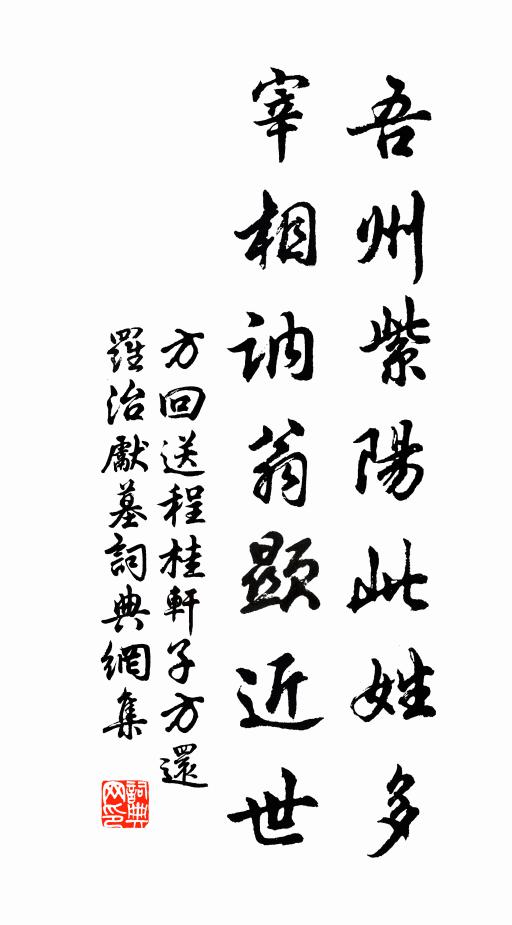 吾州紫陽此姓多
宰相訥翁顯近世
方回送程桂軒子方還
羅治獻墓詞典網集
詞典网印